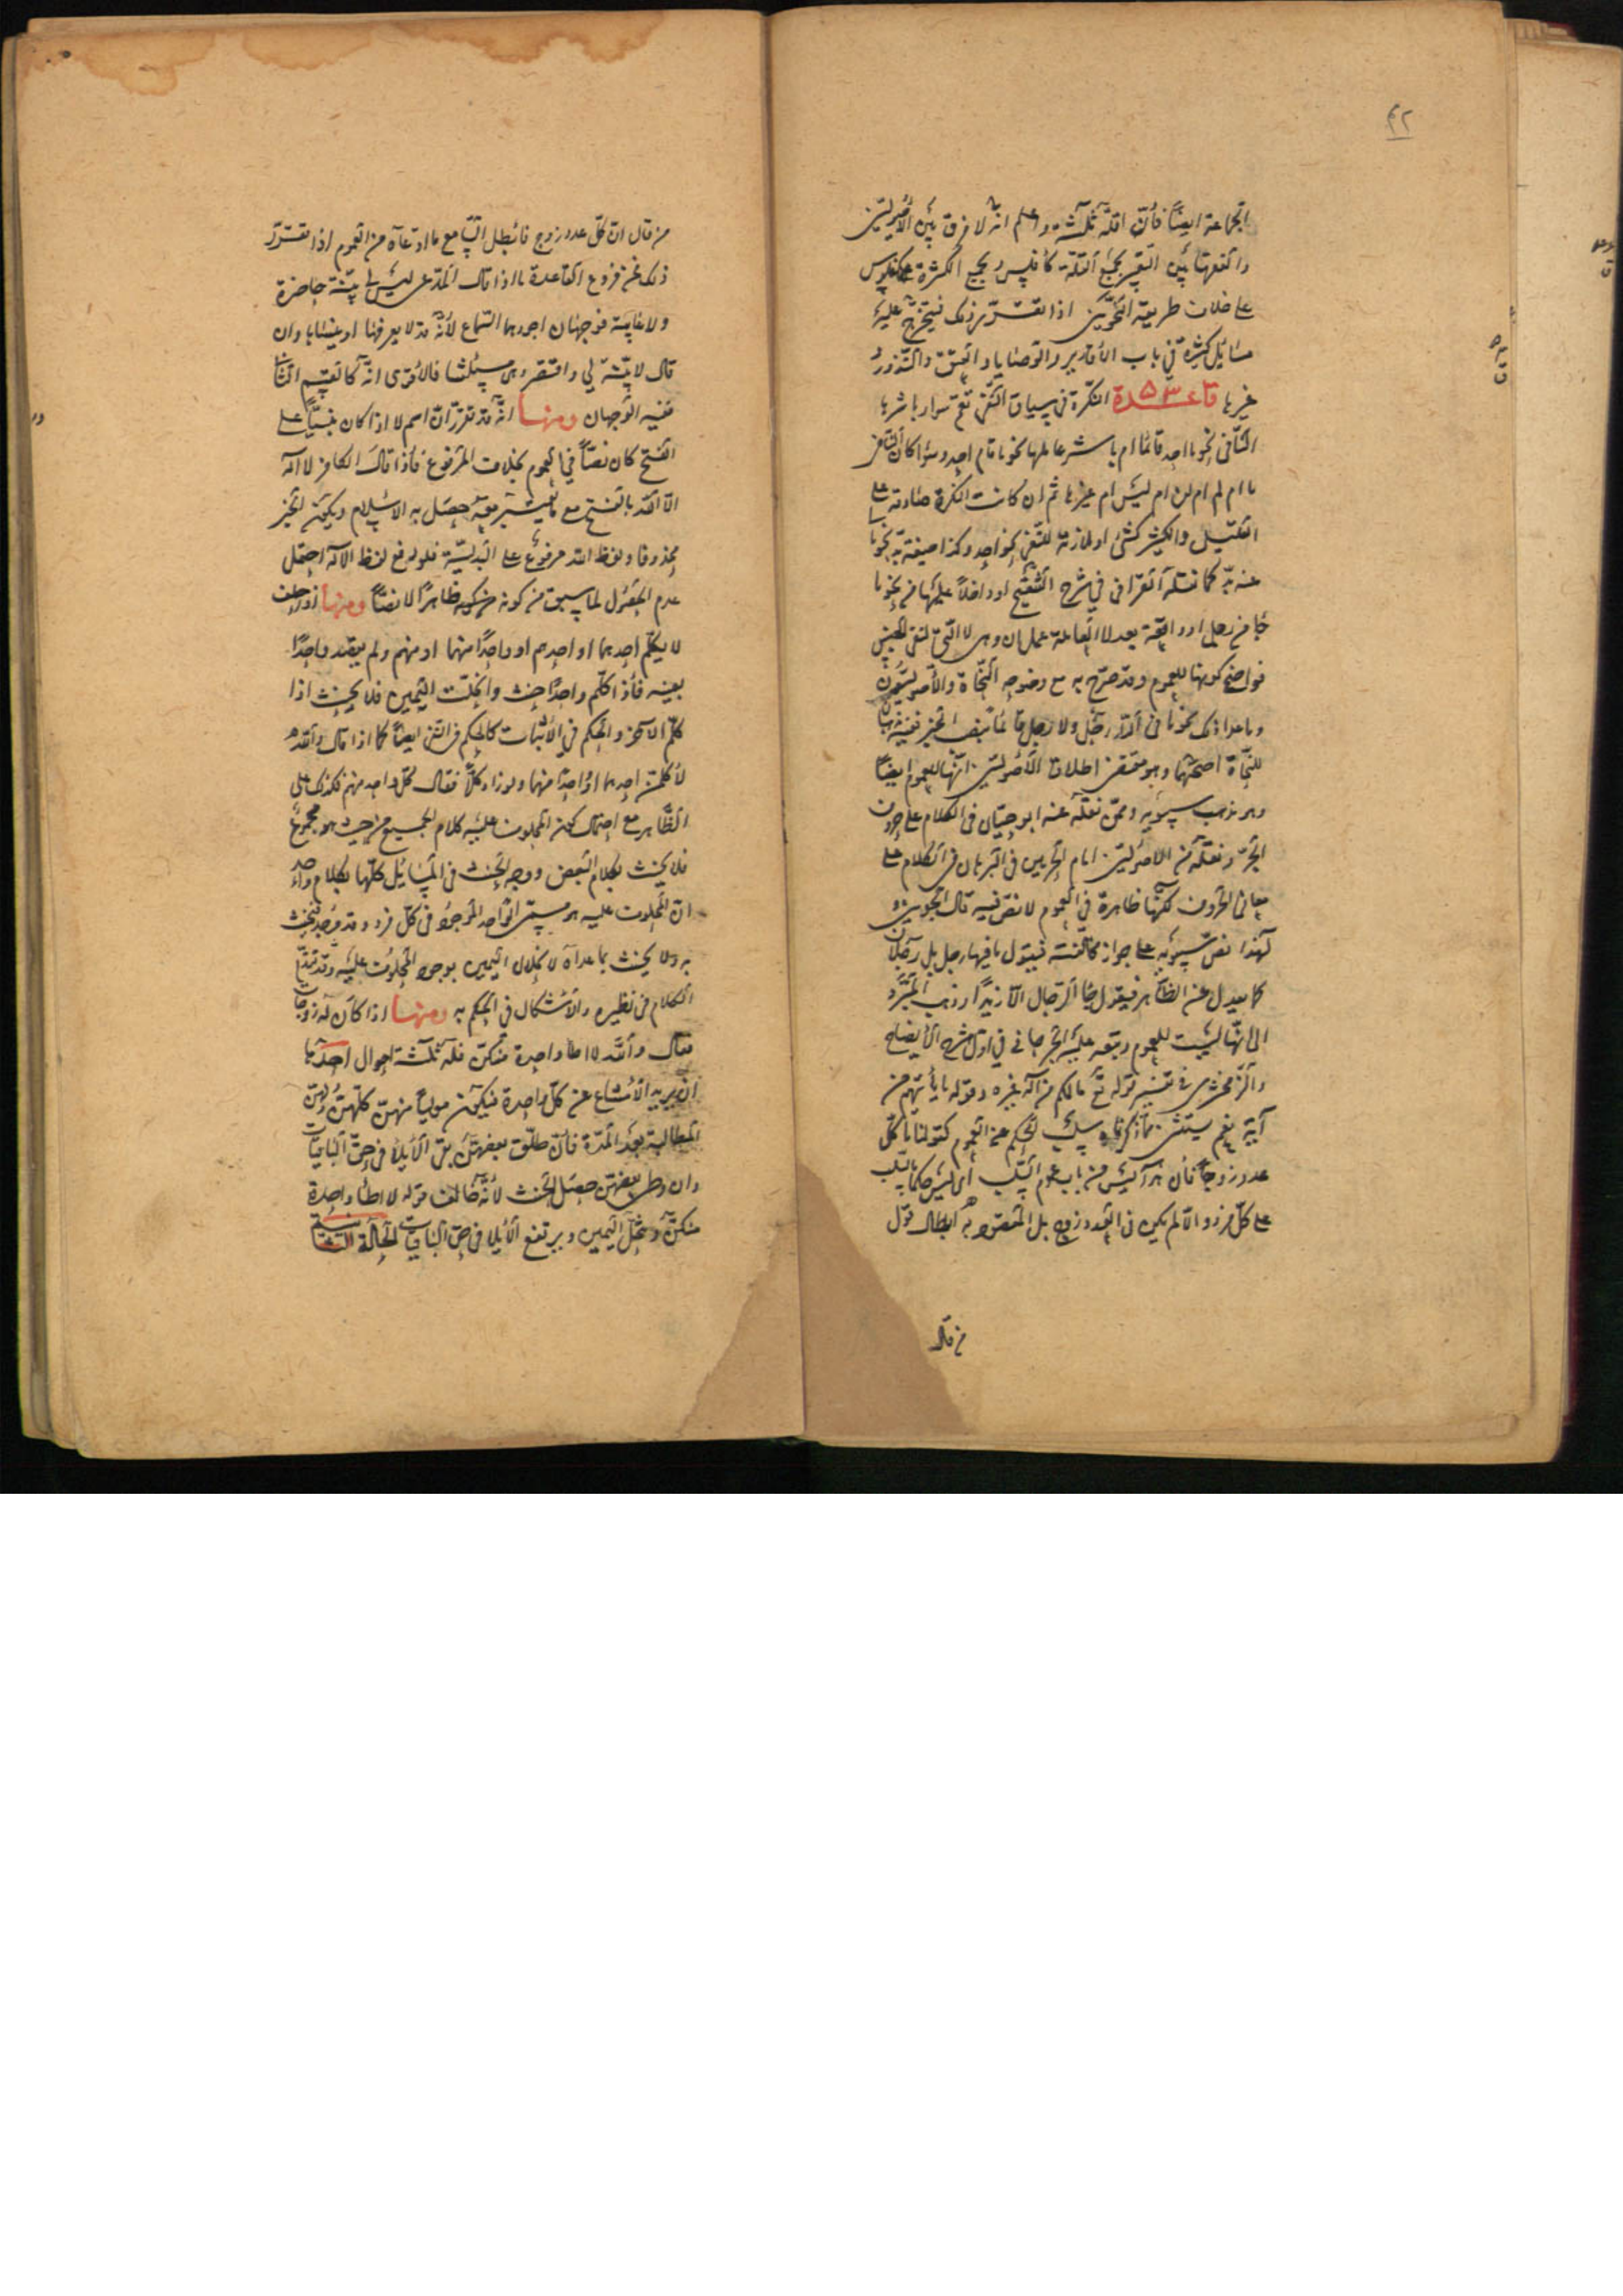 ٤٢
الجماعة ايضًا فانّ اقلّه ثلثة واعلم انّه لا فرق بين الاصوليّين
والفقهاء بين التعبير بجمع القلّة كأفلس وبجمع الكثرة كفلوس
على خلاف طريقة النحويّين اذا تقرّر ذلك فيتخرّج عليه
مسائل كثيرة في باب الاقارير والوصايا والعتق والنذور و
غيرها قاعدة النكرة في سياق النفي تعمّ سواء باشرها
النافي نحو ما احد قائما ام باشر عاملها نحو ما قام احد وسواء كان النافي
ما ام لم ام لن ام ليس ام غيرها ثم ان كانت النكرة صادقة على
القليل والكثير كشئ او ملازمة للنفي نحو احد وكذا صيغة بدّ نحو ما
عنه بدّ كما نقله القرافي في شرح التنقيح او داخلاً عليها من نحو ما
جاء من رجل او واقعة بعد لا العاملة عمل ان وهي لا التي لنفي الجنس
فواضح كونها للعموم وقد صرّح به مع وضوحه النحاة والأصوليّون
وما عدا ذلك نحو ما في الدار رجل ولا رجل قائمًا بنصب الخبر ففيه مذهبان
للنحاة اصحّهما وهو مقتضى اطلاق الأصوليّين انّها للعموم ايضًا
وهو مذهب سيبويه وممّن نقله عنه ابو حيّان في الكلام على حروف
الجرّ ونقله من الاصوليّين امام الحرمين في البرهان في الكلام على
معاني الحروف لكنّها ظاهرة في العموم لا نصّ فيه قال الجويني و
لهذا نصّ سيبويه على جواز مخالفته فيقول ما فيها رجل بل رجلان
كما يعدل عن الظاهر فيقول جاء الرجال الّا زيدًا وذهب المبرّد
الى انّها ليست للعموم وتبعه عليه الجرجاني في اوّل شرح الايضاح
والزمخشري في تفسير قوله تع ما لكم من اله غيره وقوله ما يأتيهم من
آية نعم يستثنى ممّا ذكرناه سلب الحكم عن العموم كقولنا ما كلّ
عدد زوجًا فان هذا ليس من باب عموم السلب اى ليس حكما بالسلب
على كلّ فرد والّا لم يكن في العدد زوج بل المقصود به ابطال قول
من قال
من قال انّ كلّ عدد زوج فابطل السامع ما ادّعاه من العموم اذا تقرّر
ذلك فمن فروع القاعدة ما اذا قال المدّعى ليس لي بيّنة حاضرة
ولا غايبة فوجهان اجودهما السماع لأنّه قد لا يعرفها او ينساها وان
قال لا بيّنة لي واقتصر وهى مسئلتنا فالأقوى انّه كالقسم الثاني
ففيه الوجهان ومنها انّه قد تقرّر انّ اسم لا اذا كان مبنيًّا على
الفتح كان نصًّا في العموم بخلاف المرفوع فاذا قال الكافر لا اله
الّا الله بالفتح مع ما يعتبر معه حصل به الاسلام ويكون الخبر
محذوفا ولفظ الله مرفوع على البدليّة فلو رفع لفظ الاله احتمل
عدم القبول لما سبق من كونه ظاهرًا لا نصًّا ومنها اذا حلف
لا يكلّم احدهما او احدهم او واحدًا منهما او منهم ولم يقصد واحدًا
بعينه فاذا كلّم واحدًا حنث وانحلّت اليمين فلا يحنث اذا
كلّم الآخر والحكم في الاثبات كالحكم في النفي ايضًا كما اذا قال والله
لأكلّمنّ احدهما او واحدًا منهما ولو زاد كلّا فقال كلّ واحد منهم فكذلك على
الظاهر مع احتمال كون المحلوف عليه كلام الجميع من حيث هو مجموع
فلا يحنث بكلام البعض ووجه الحنث في المسائل كلّها بكلام واحد
انّ المحلوف عليه هو مسمّى الواحد الموجود في كلّ فرد وقد وُجد فيحنث
به ولا يحنث بما عداه لانحلال اليمين بوجود المحلوف عليه وقد تقدّم
الكلام في نظيره والاشكال في الحكم به ومنها اذا كان له زوجات
فقال والله لا اطأ واحدة منكنّ فله ثلثة احوال احديها
ان يريد الامتناع عن كلّ واحدة فيكون موليًا منهنّ كلّهنّ ولهنّ
المطالبة بعد المدّة فان طلّق بعضهنّ بقى الايلاء في حقّ الباقيات
وان وطى بعضهنّ حصل الحنث لأنّه خالف قوله لا اطأ واحدة
منكنّ وتنحلّ اليمين ويرتفع الايلاء في حقّ الباقيات الحالة الثانية